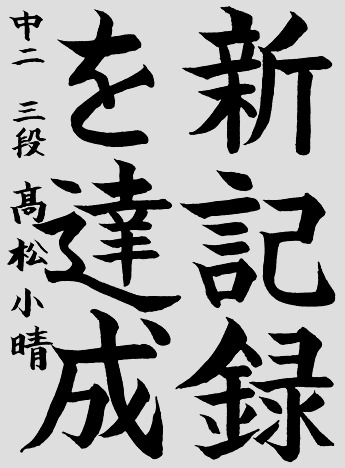 新記録
を達成
中二 三段 髙松小晴